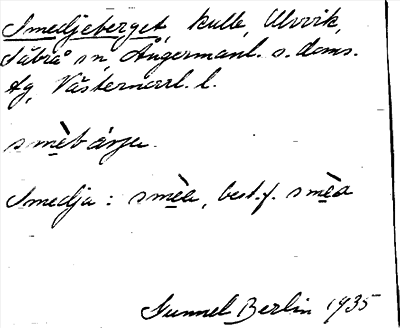 Smedjeberget, kulle, Ulvvik,
Säbrå sn, Ångermanl. s. doms.
tg, Västernorrl. l.
smèbárjε.
Smedja : smèa, best. f. smèa
Gunnel Berlin 1935